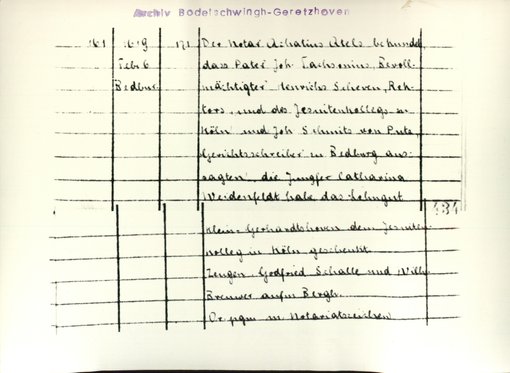 Archiv Bodelschwingh-Geretzhoven
161 1619 171 Der Notar Achatius Abels bekundet,
Febr 6 dass Pater Joh. Tachsonius, Bevoll-
Bedbur mächtigter Henrichs Scheren, Rek-
tors, und des Jesuitenkollegs in
Köln und Joh. Schmits von Puts,
Gerichtsschreiber in Bedburg aus-
sagten, die Jungfer Catharina
Weidenfeldt habe das Lehngut
434
Klein-Gerhardtshoven dem Jesuiten-
kolleg in Köln geschenkt
Zeugen: Godfried Schalle und Wilh
Brewer aufm Bergh.
Or. pgm. m. Notariatszeichen